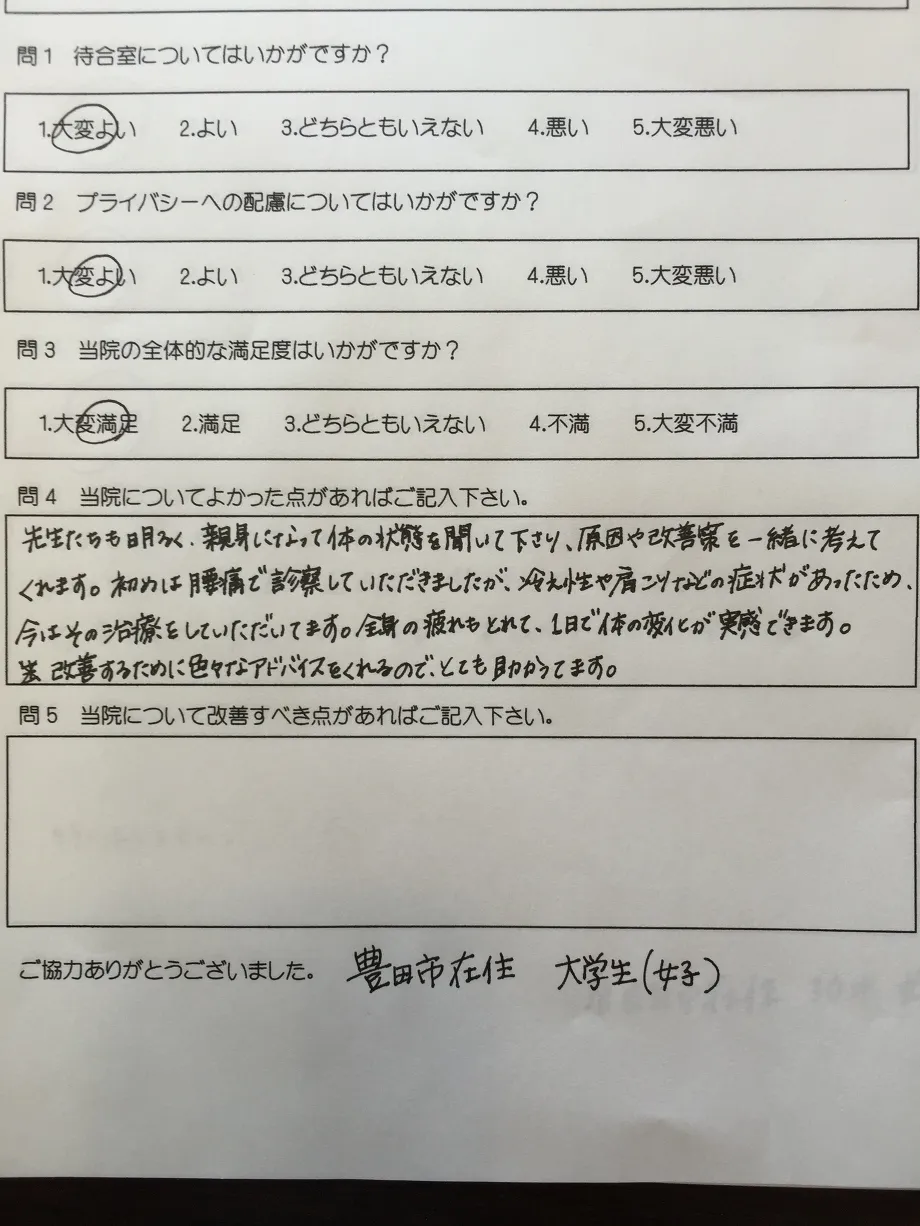 問1 待合室についてはいかがですか?
1.大変よい 2.よい 3.どちらともいえない 4.悪い 5.大変悪い
問2 プライバシーへの配慮についてはいかがですか?
1.大変よい 2.よい 3.どちらともいえない 4.悪い 5.大変悪い
問3 当院の全体的な満足度はいかがですか?
1.大変満足 2.満足 3.どちらともいえない 4.不満 5.大変不満
問4 当院についてよかった点があればご記入下さい。
先生たちも明るく、親身になって体の状態を聞いて下さり、原因や改善策を一緒に考えて
くれます。初めは腰痛で診察していただきましたが、冷え性や肩こりなどの症状があったため、
今はその治療をしていただいてます。全身の疲れもとれて、1日で体の変化が実感できます。
改善するために色々なアドバイスをくれるので、とても助かってます。
問5 当院について改善すべき点があればご記入下さい。
ご協力ありがとうございました。 豊田市在住 大学生(女子)